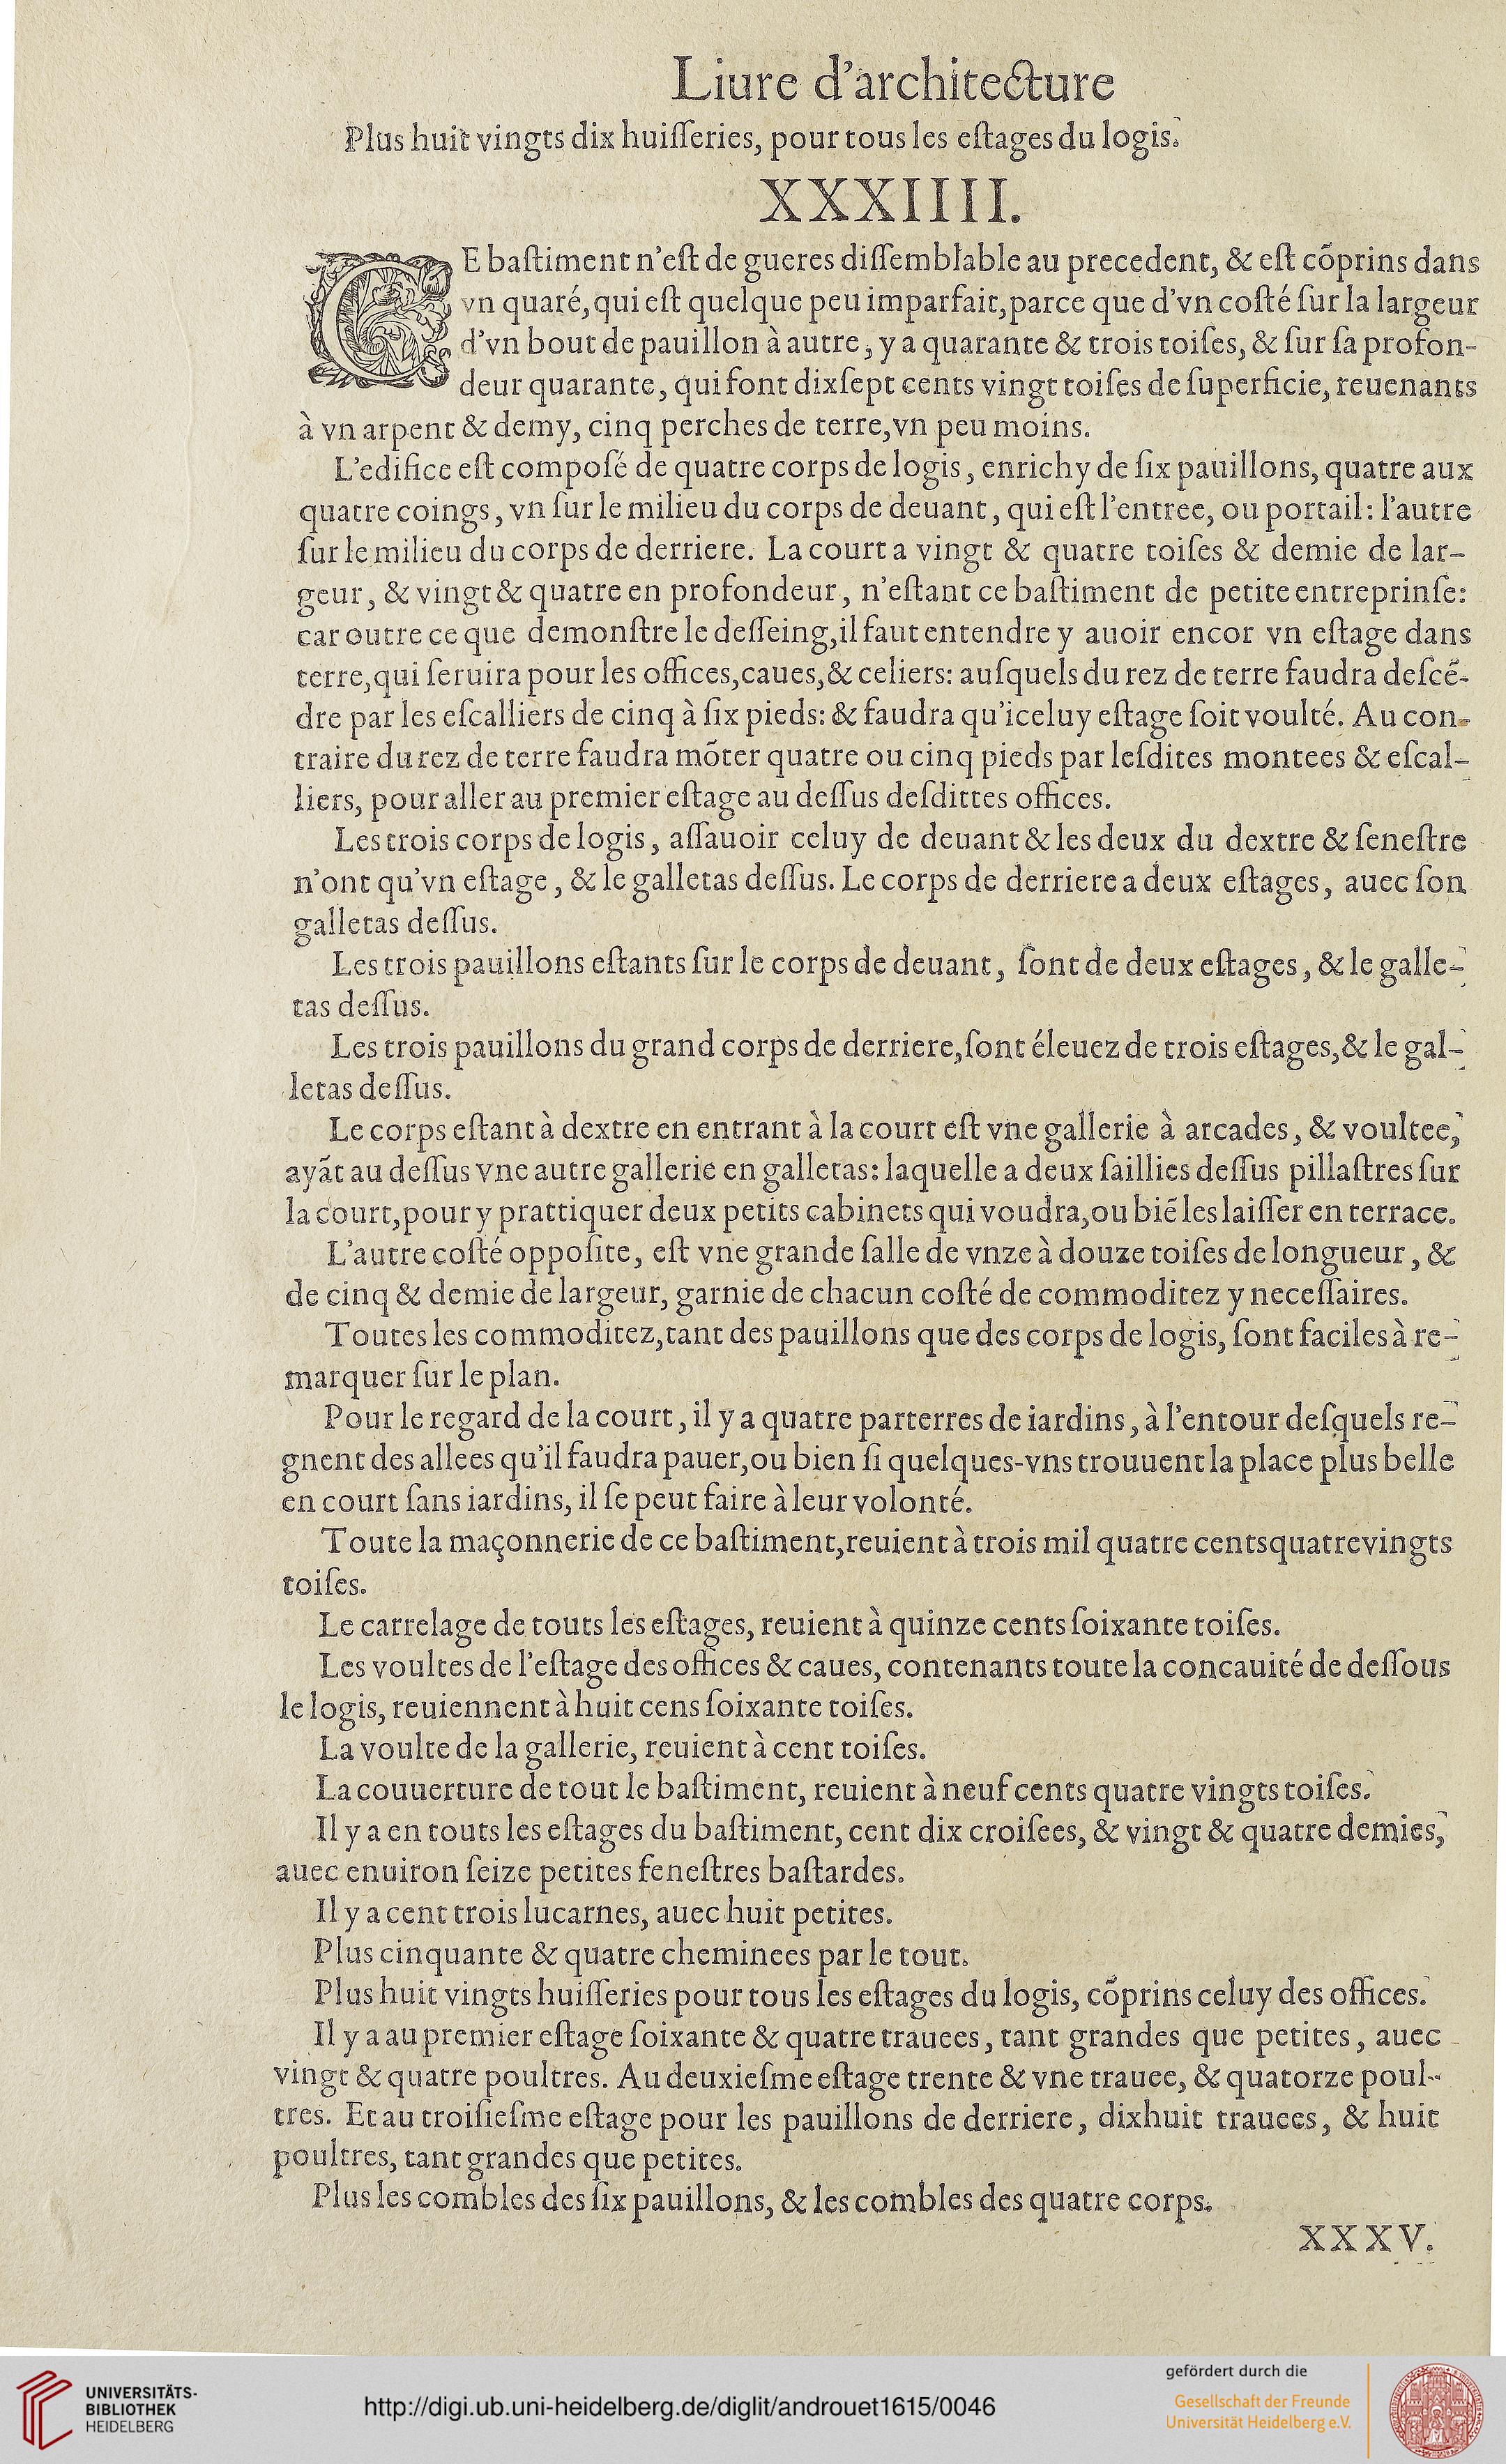 Liure d'architecture
Plus huit vingts dix huiſſeries, pour tous les eſtages du logis.
XXXIIII.
CE baſtiment n'eſt de gueres diſſemblable au precedent, & eſt cõprins dans
vn quaré, qui eſt quelque peu imparfait, parce que d'vn coſté ſur la largeur
d'vn bout de pauillon à autre, y a quarante & trois toiſes, & ſur ſa profon-
deur quarante, qui font dixſept cents vingt toiſes de ſuperficie, reuenants
à vn arpent & demy, cinq perches de terre, vn peu moins.
L'edifice eſt compoſé de quatre corps de logis, enrichy de ſix pauillons, quatre aux
quatre coings, vn ſur le milieu du corps de deuant, qui eſt l'entree, ou portail: l'autre
ſur le milieu du corps de derriere. La court a vingt & quatre toiſes & demie de lar-
geur, & vingt & quatre en profondeur, n'eſtant ce baſtiment de petite entreprinſe:
car outre ce que demonſtre le deſſeing, il faut entendre y auoir encor vn eſtage dans
terre, qui ſeruira pour les offices, caues, & celiers: auſquels du rez de terre faudra deſcẽ-
dre par les eſcalliers de cinq à ſix pieds: & faudra qu'iceluy eſtage ſoit voulté. Au con-
traire du rez de terre faudra mõter quatre ou cinq pieds par leſdites montees & eſcal-
liers, pour aller au premier eſtage au deſſus deſdittes offices.
Les trois corps de logis, aſſauoir celuy de deuant & les deux du dextre & ſeneſtre
n'ont qu'vn eſtage, & le galletas deſſus. Le corps de derriere a deux eſtages, auec ſon
galletas deſſus.
Les trois pauillons eſtants ſur le corps de deuant, ſont de deux eſtages, & le galle-
tas deſſus.
Les trois pauillons du grand corps de derriere, ſont éleuez de trois eſtages, & le gal-
letas deſſus.
Le corps eſtant à dextre en entrant à la court eſt vne gallerie à arcades, & voultee,
ayãt au deſſus vne autre gallerie en galletas: laquelle a deux ſaillies deſſus pillaſtres ſur
la court, pour y prattiquer deux petits cabinets qui voudra, ou biẽ les laiſſer en terrace.
L'autre coſté oppoſite, eſt vne grande ſalle de vnze à douze toiſes de longueur, &
de cinq & demie de largeur, garnie de chacun coſté de commoditez y neceſſaires.
Toutes les commoditez, tant des pauillons que des corps de logis, ſont faciles à re-
marquer ſur le plan.
Pour le regard de la court, il y a quatre parterres de iardins, à l'entour deſquels re-
gnent des allees qu'il faudra pauer, ou bien ſi quelques-vns trouuent la place plus belle
en court ſans iardins, il ſe peut faire à leur volonté.
Toute la maçonnerie de ce baſtiment, reuient à trois mil quatre cents quatrevingts
toiſes.
Le carrelage de touts les eſtages, reuient à quinze cents ſoixante toiſes.
Les voultes de l'eſtage des offices & caues, contenants toute la concauité de deſſous
le logis, reuiennent à huit cens ſoixante toiſes.
La voulte de la gallerie, reuient à cent toiſes.
La couuerture de tout le baſtiment, reuient à neuf cents quatre vingts toiſes.
Il y a en touts les eſtages du baſtiment, cent dix croiſees, & vingt & quatre demies,
auec enuiron ſeize petites feneſtres baſtardes.
Il y a cent trois lucarnes, auec huit petites.
Plus cinquante & quatre cheminees par le tout.
Plus huit vingts huiſſeries pour tous les eſtages du logis, cõprins celuy des offices.
Il y a au premier eſtage ſoixante & quatre trauees, tant grandes que petites, auec
vingt & quatre poultres. Au deuxieſme eſtage trente & vne trauee, & quatorze poul-
tres. Et au troiſieſme eſtage pour les pauillons de derriere, dixhuit trauees, & huit
poultres, tant grandes que petites.
Plus les combles des ſix pauillons, & les combles des quatre corps.
XXXV.
UNIVERSITÄTS-
BIBLIOTHEK
HEIDELBERG
http://digi.ub.uni-heidelberg.de/diglit/androuet1615/0046
gefördert durch die
Gesellschaft der Freunde
Universität Heidelberg e.V.